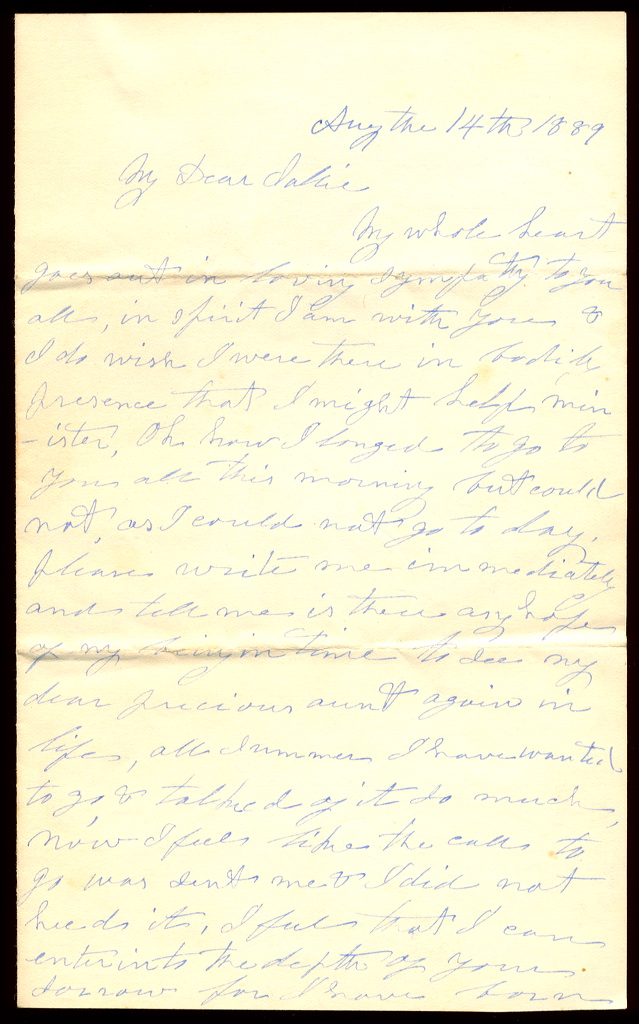 Aug the 14th 1889
My Dear Sallie
My whole heart
goes out in loving sympathy to you
all, in spirit I am with you &
I do wish I were there in bodily
presence that I might help min
-ister, Oh how I longed to go to
you all this morning but could
not, as I could not go to day,
please write me immediately
and tell me is there any hope
of my being in time to see my
dear precious aunt again in
life, all summer I have wanted
to go & talked of it so much,
now I feel like the call to
go was sent me & I did not
heed it, I feel that I can
enter into the depth of your
sorrow for I have born